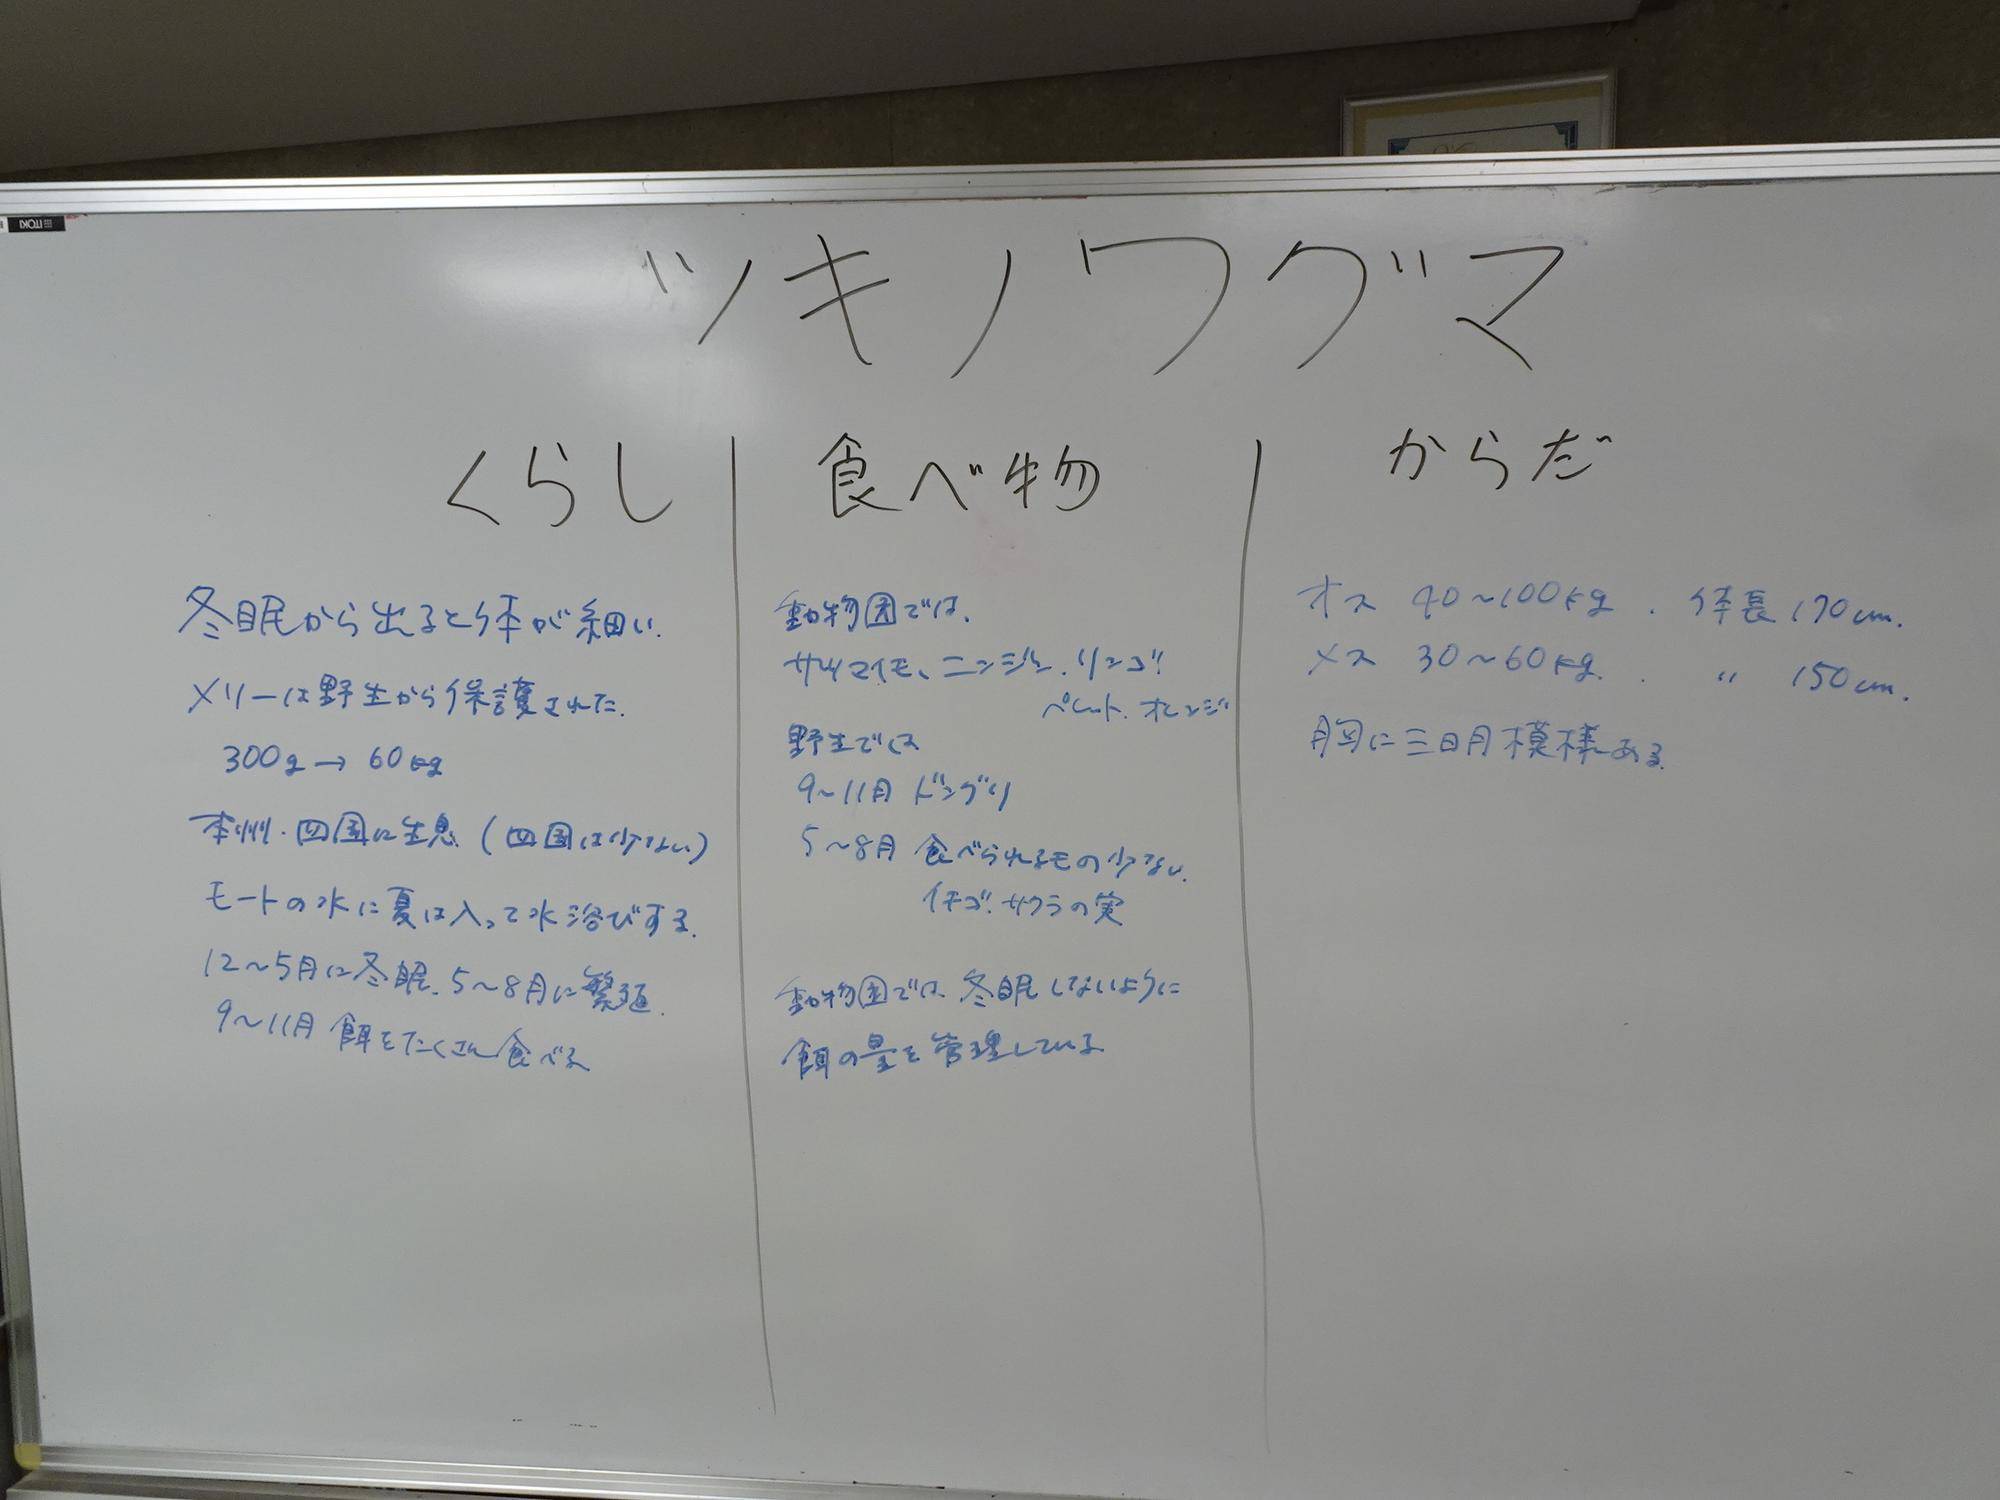 ITOKI
ツキノワグマ
くらし
冬眠から出ると体が細い.
メリーは野生から保護された.
300g→60kg
本州・四国に生息(四国は少ない)
モートの水に夏は入って水浴びする.
12~5月に冬眠.5~8月に繁殖.
9~11月 餌をたくさん食べる
食べ物
動物園では.
サツマイモ、ニンジン.リンゴ.
ペレット.オレンジ
野生では
9~11月 ドングリ
5~8月 食べられるもの少ない.
イチゴ.サクラの実
動物園では冬眠しないように
餌の量を管理している
からだ
オス 40~100kg.体長170cm.
メス 30~60kg. 〃 150cm.
胸に三日月模様ある.